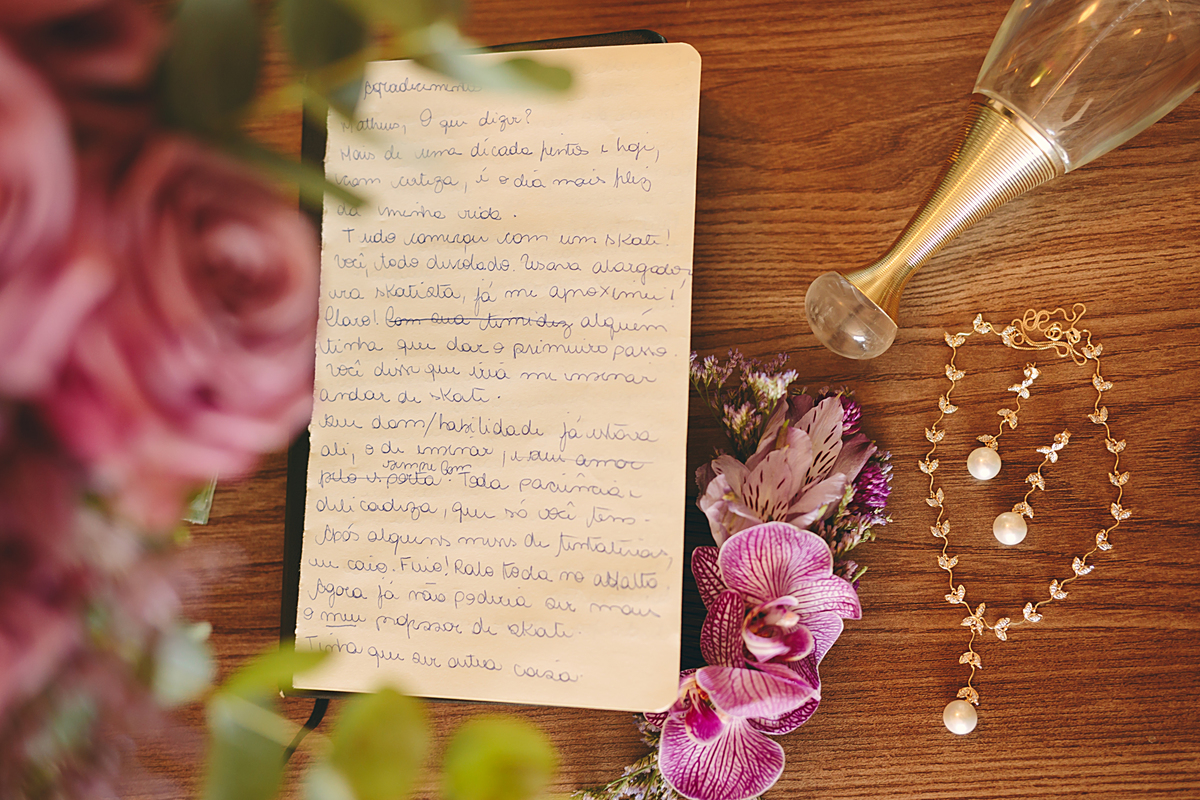 Agradecimento
Matheus, O que dizer?
Mais de uma década juntos e hoje,
com certeza, é o dia mais feliz
da minha vida.
Tudo começou com um skate!
Você, todo descolado. Usava alargador
era skatista, já me aproximei!
Claro! Com sua timidez alguém
tinha que dar o primeiro passo.
Você disse que iria me ensinar
andar de skate.
Seu dom/habilidade já estava
ali, o de ensinar, e seu amor
pelo esporte. sempre com Toda paciência e
delicadeza, que só você tem.
Após alguns meses de tentativas,
eu caio. Feio! Ralo toda no asfalto
Agora já não poderia ser mais
o meu professor de skate.
Tinha que ser outra coisa.